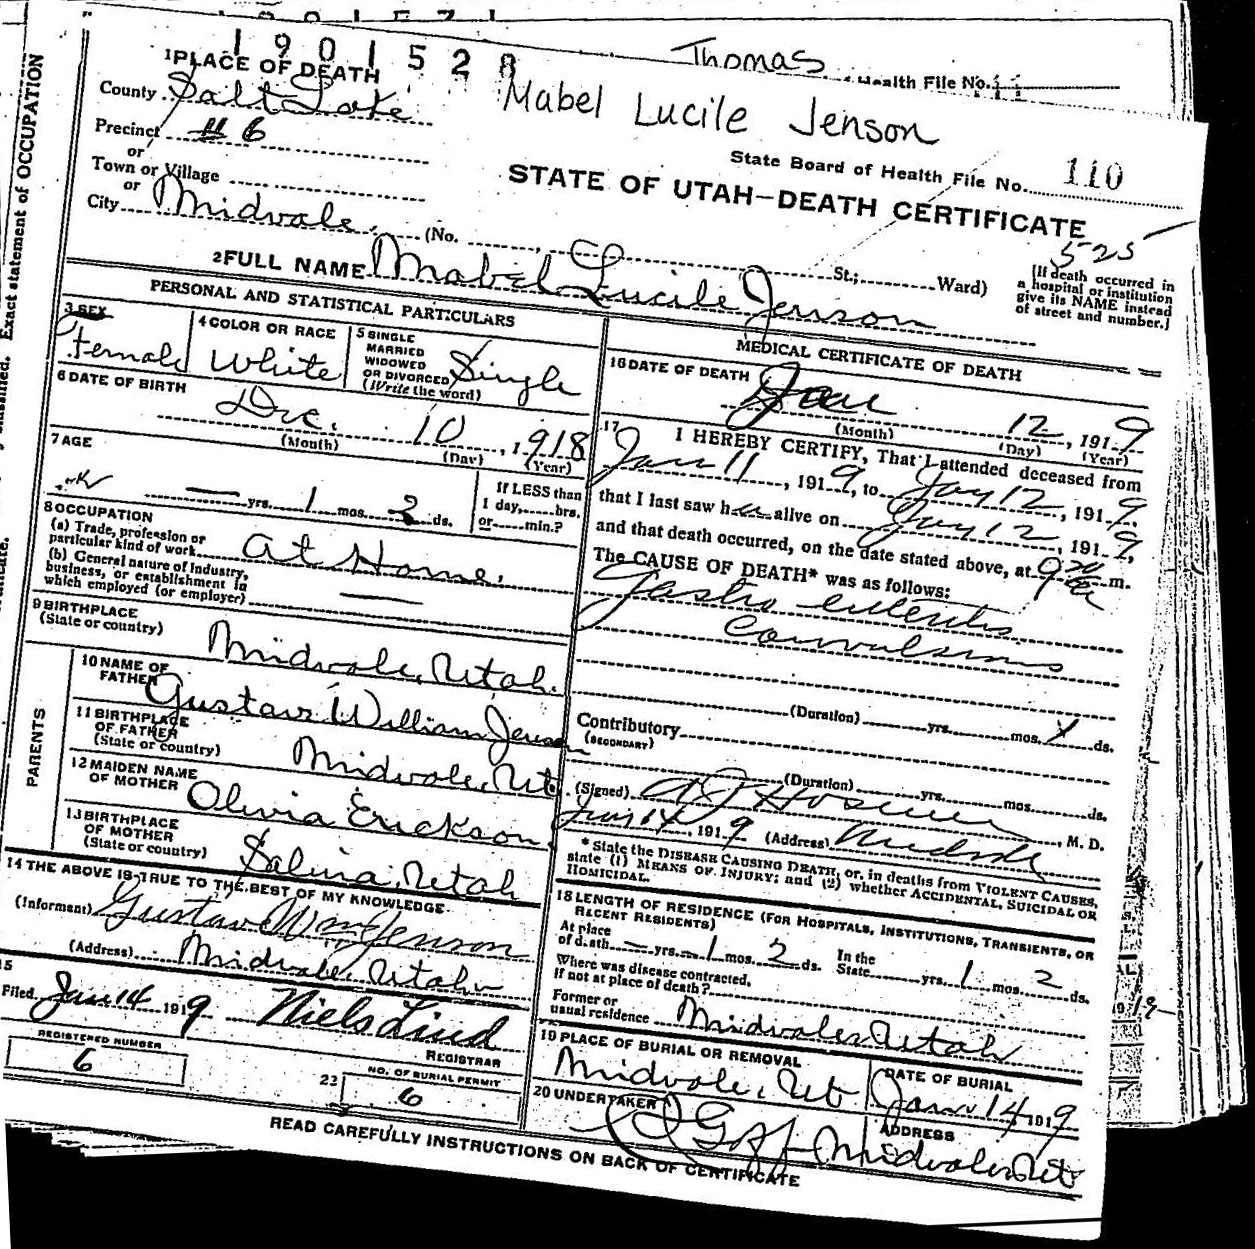 1901528
Thomas
Health File No.
Mabel Lucile Jenson
1 PLACE OF DEATH
County Salt Lake
Precinct # 6
or
Town or Village
or
City Midvale (No. St.; Ward)
State Board of Health File No. 110
STATE OF UTAH—DEATH CERTIFICATE
525
[If death occurred in a hospital or institution give its NAME instead of street and number.]
2 FULL NAME Mabel Lucile Jenson
PERSONAL AND STATISTICAL PARTICULARS
3 SEX Female
4 COLOR OR RACE White
5 SINGLE MARRIED WIDOWED OR DIVORCED (Write the word) Single
6 DATE OF BIRTH
Dec. 10, 1918
(Month) (Day) (Year)
7 AGE
— yrs. 1 mos. 2 ds.
If LESS than 1 day, hrs. or min.?
8 OCCUPATION
(a) Trade, profession or particular kind of work At Home.
(b) General nature of industry, business, or establishment in which employed (or employer) —
9 BIRTHPLACE
(State or country) Midvale, Utah.
PARENTS
10 NAME OF FATHER Gustav William Jenson
11 BIRTHPLACE OF FATHER (State or country) Midvale, Ut
12 MAIDEN NAME OF MOTHER Olivia Erickson
13 BIRTHPLACE OF MOTHER (State or country) Salina, Utah
14 THE ABOVE IS TRUE TO THE BEST OF MY KNOWLEDGE
(Informant) Gustav Wm Jenson
(Address) Midvale, Utah
15
Filed Jan 14 1919 Niels Lind
REGISTRAR
REGISTERED NUMBER
6
22 NO. OF BURIAL PERMIT
6
MEDICAL CERTIFICATE OF DEATH
16 DATE OF DEATH Jan 12, 1919
(Month) (Day) (Year)
17 I HEREBY CERTIFY, That I attended deceased from
Jan 11, 1919, to Jan 12, 1919,
that I last saw her alive on Jan 12, 1919,
and that death occurred, on the date stated above, at 9 20 a m.
The CAUSE OF DEATH* was as follows:
Gastro enteritis
convulsions
(Duration) yrs. mos. ds.
Contributory
(SECONDARY)
(Duration) yrs. mos. ds.
(Signed) M. D.
Jan 14, 1919 (Address) Midvale
* State the DISEASE CAUSING DEATH, or, in deaths from VIOLENT CAUSES, state (1) MEANS OF INJURY; and (2) whether ACCIDENTAL, SUICIDAL OR HOMICIDAL.
18 LENGTH OF RESIDENCE (FOR HOSPITALS, INSTITUTIONS, TRANSIENTS, OR RECENT RESIDENTS)
At place of death — yrs. 1 mos. 2 ds. In the State yrs. 1 mos. 2 ds.
Where was disease contracted, if not at place of death?
Former or usual residence Midvale, Utah
19 PLACE OF BURIAL OR REMOVAL
Midvale, Ut
DATE OF BURIAL
Jan. 14 1919
20 UNDERTAKER
Goff
ADDRESS
Midvale, Ut
READ CAREFULLY INSTRUCTIONS ON BACK OF CERTIFICATE
Exact statement of OCCUPATION